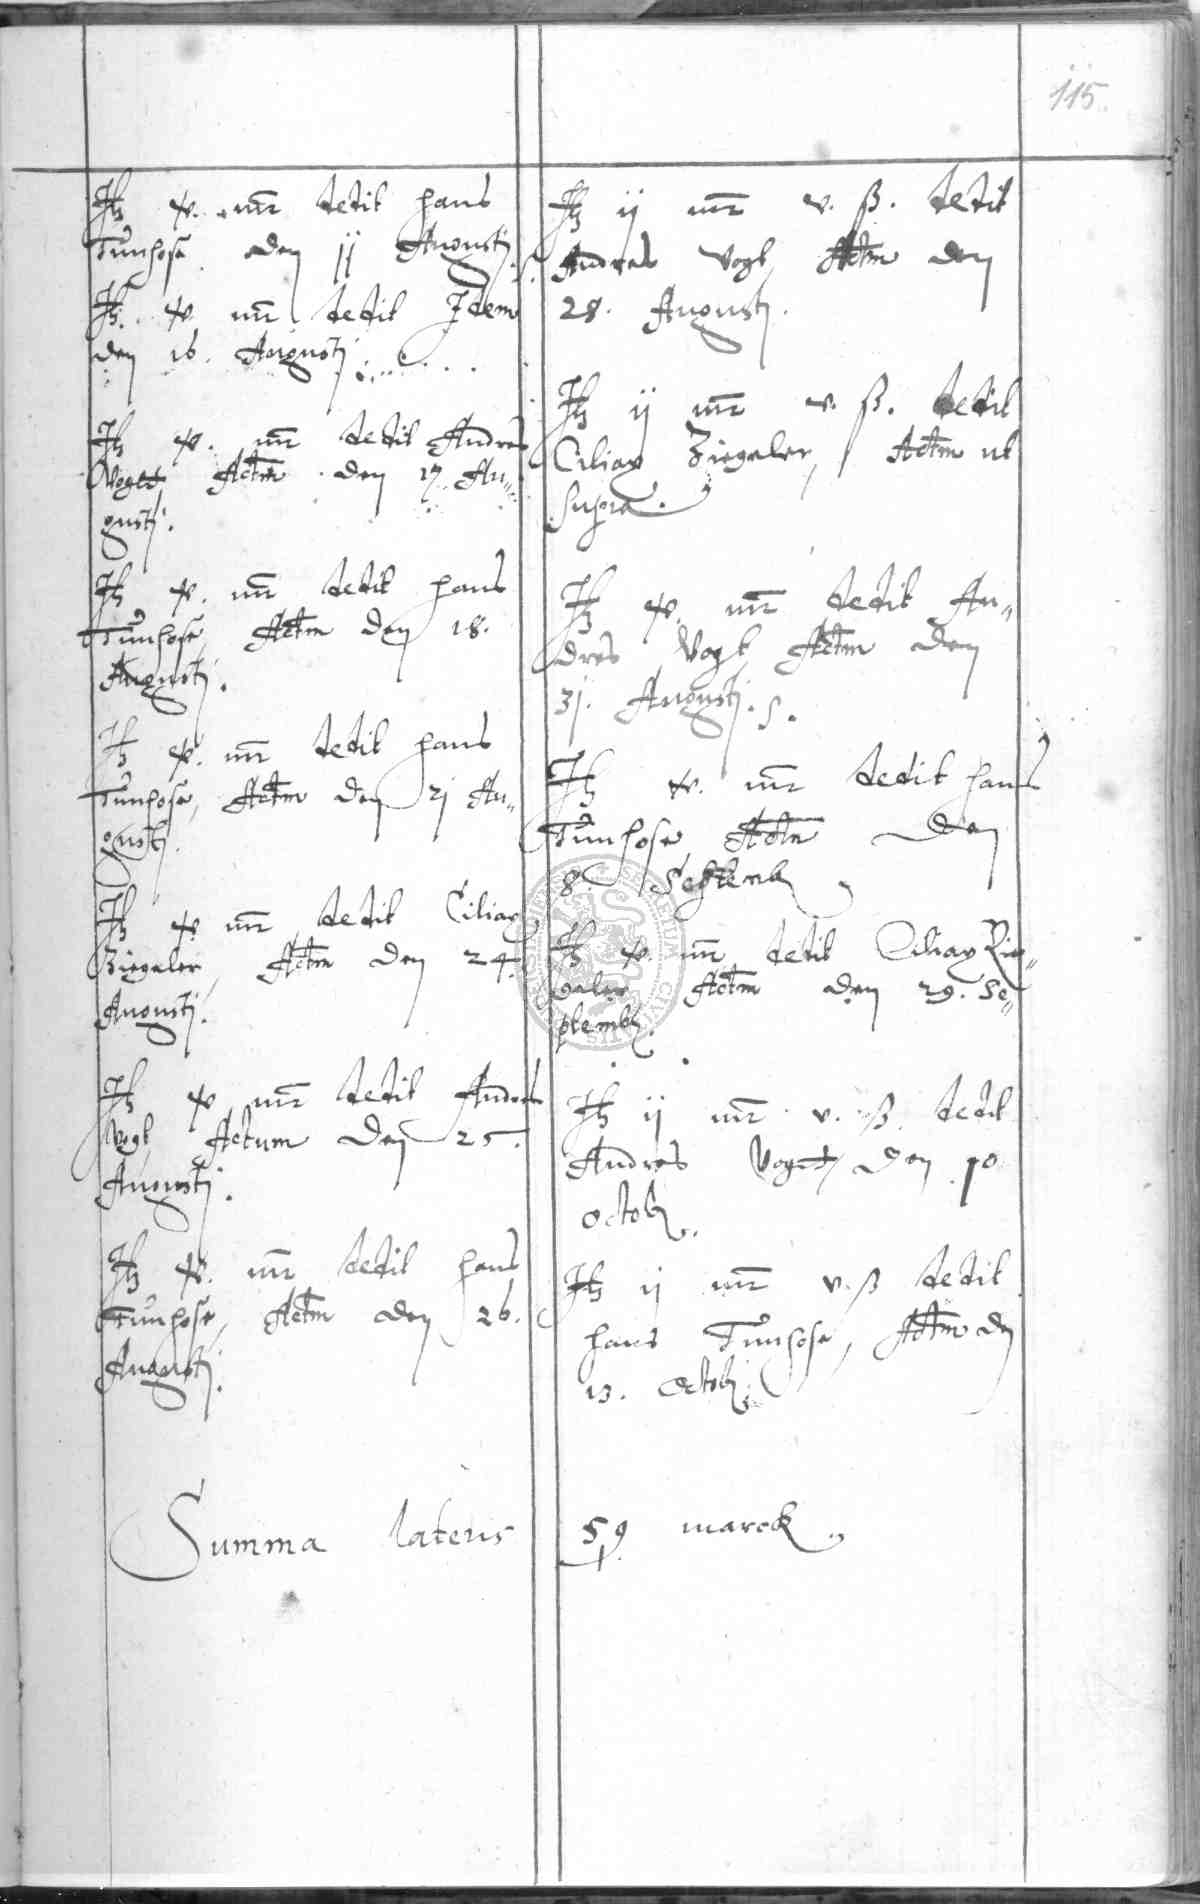 115.
Itz v. mr dedit hans
Tunhose den jj Augustj
Itz v. mr dedit Idem
den 16. Augustj
Itz v. mr dedit Andres
Vogtt, Actm den 17. Au=
gustj.
Itz v. mr dedit hans
Tunhose, Actm den 18.
Augustj.
Itz v. mr dedit hans
Tunhose, Actm den 2j Au=
gustj.
Itz v. mr dedit Ciliax
Ziegeler, Actm den 24.
Augustj.
Itz v. mr dedit Andres
Vogt, Actum den 25.
Augustj.
Itz v. mr dedit hans
Tunhose, Actm den 26.
Augustj.
Itz ij mr v. ß. dedit
Andres Vogt, Actm den
28. Augustj.
Itz ij mr v. ß. dedit
Ciliax Ziegeler, Actm ut
Supra.
Itz v. mr dedit An=
dres Vogt, Actm den
3j. Augustj.
Itz v. mr dedit hans
Tunhose, Actm den
8. Septemb
Itz v. mr dedit Ciliax Zie=
geler Actm den 29. Se=
ptemb.
Itz ij mr v. ß dedit
Andres Vogtt, den 10
Octob.
Itz ij mr v. ß dedit
hans Tunhose, Actm den
13. Octob.
Summa lateris 59 marck.